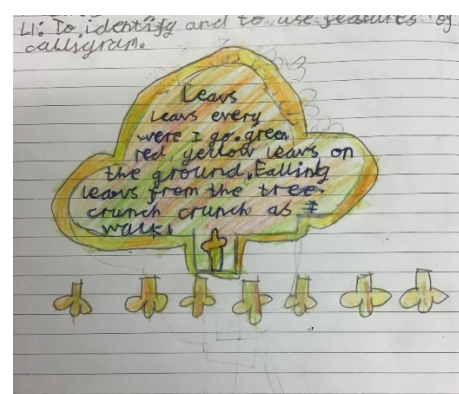 LI: To identify and to use features of
calligram.
Leavs
Leavs every
were I go. green
red yellow leavs on
the ground. Falling
leavs from the tree.
crunch crunch as I
walk.